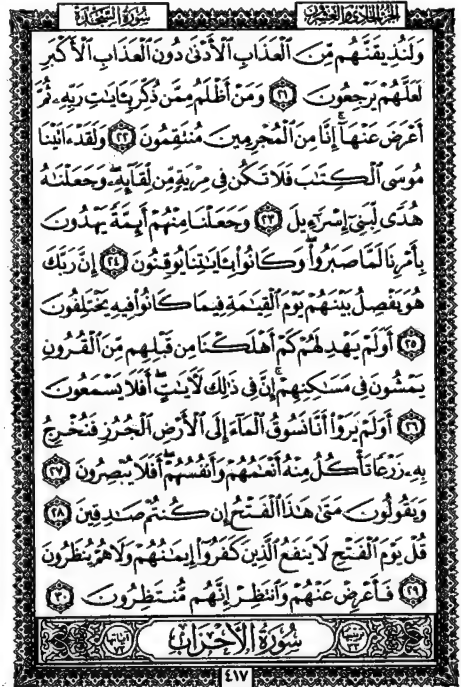 الجزء الحادي والعشرون سورة السجدة
وَلَنُذِيقَنَّهُم مِّنَ ٱلْعَذَابِ ٱلْأَدْنَىٰ دُونَ ٱلْعَذَابِ ٱلْأَكْبَرِ
لَعَلَّهُمْ يَرْجِعُونَ ٢١ وَمَنْ أَظْلَمُ مِمَّن ذُكِّرَ بِـَٔايَٰتِ رَبِّهِۦ ثُمَّ
أَعْرَضَ عَنْهَآ ۚ إِنَّا مِنَ ٱلْمُجْرِمِينَ مُنتَقِمُونَ ٢٢ وَلَقَدْ ءَاتَيْنَا
مُوسَى ٱلْكِتَٰبَ فَلَا تَكُن فِى مِرْيَةٍ مِّن لِّقَآئِهِۦ ۖ وَجَعَلْنَٰهُ
هُدًى لِّبَنِىٓ إِسْرَٰٓءِيلَ ٢٣ وَجَعَلْنَا مِنْهُمْ أَئِمَّةً يَهْدُونَ
بِأَمْرِنَا لَمَّا صَبَرُوا۟ ۖ وَكَانُوا۟ بِـَٔايَٰتِنَا يُوقِنُونَ ٢٤ إِنَّ رَبَّكَ
هُوَ يَفْصِلُ بَيْنَهُمْ يَوْمَ ٱلْقِيَٰمَةِ فِيمَا كَانُوا۟ فِيهِ يَخْتَلِفُونَ
٢٥ أَوَلَمْ يَهْدِ لَهُمْ كَمْ أَهْلَكْنَا مِن قَبْلِهِم مِّنَ ٱلْقُرُونِ
يَمْشُونَ فِى مَسَٰكِنِهِمْ ۚ إِنَّ فِى ذَٰلِكَ لَءَايَٰتٍ ۖ أَفَلَا يَسْمَعُونَ
٢٦ أَوَلَمْ يَرَوْا۟ أَنَّا نَسُوقُ ٱلْمَآءَ إِلَى ٱلْأَرْضِ ٱلْجُرُزِ فَنُخْرِجُ
بِهِۦ زَرْعًا تَأْكُلُ مِنْهُ أَنْعَٰمُهُمْ وَأَنفُسُهُمْ ۖ أَفَلَا يُبْصِرُونَ ٢٧
وَيَقُولُونَ مَتَىٰ هَٰذَا ٱلْفَتْحُ إِن كُنتُمْ صَٰدِقِينَ ٢٨
قُلْ يَوْمَ ٱلْفَتْحِ لَا يَنفَعُ ٱلَّذِينَ كَفَرُوٓا۟ إِيمَٰنُهُمْ وَلَا هُمْ يُنظَرُونَ
٢٩ فَأَعْرِضْ عَنْهُمْ وَٱنتَظِرْ إِنَّهُم مُّنتَظِرُونَ ٣٠
ترتيبها ٣٣ سُورَةُ الأَحْزَابِ آياتها ٧٣
٤١٧